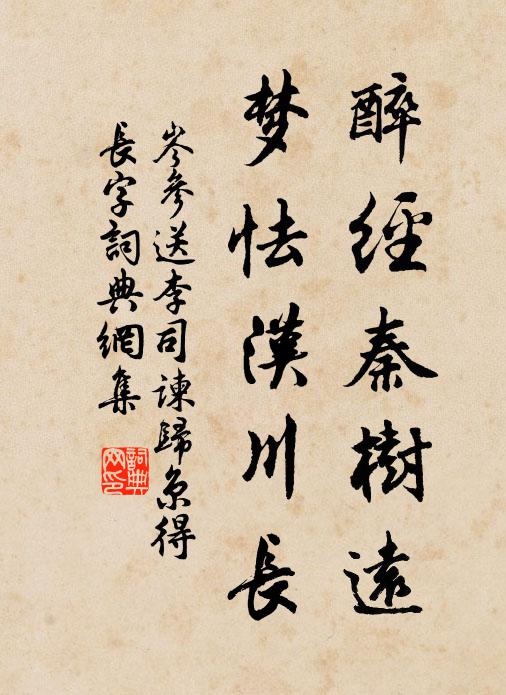 醉經秦樹遠
梦怯漢川長
岑參送李司諫歸京得
長字詞典網集
詞典网印